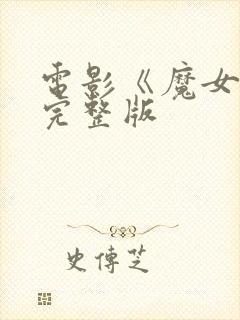 電影《魔女
完整版
史傳芝